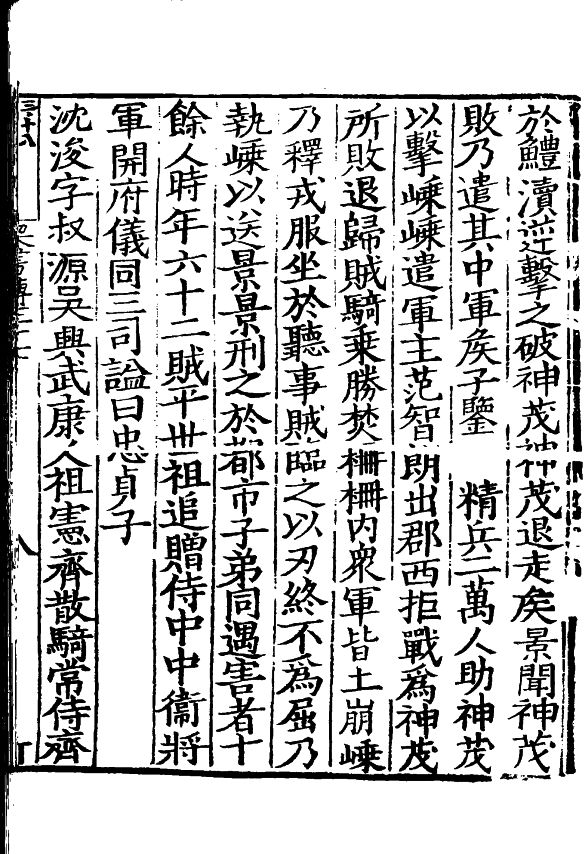 於鱧瀆逆擊之破神茂神茂退走矣景聞神茂
敗乃遣其中軍矦子鑒精兵二萬人助神茂
以擊嵊嵊遣軍主范智朗出郡西拒戰爲神茂
所敗退歸賊騎乗勝焚柵柵内衆軍皆土崩嵊
乃釋戎服坐於聽事賊臨之以刃終不爲屈乃
執嵊以送景景刑之於都市子弟同遇害者十
餘人時年六十二賊平丗祖追贈侍中中衞將
軍開府儀同三司謚曰忠貞子
沈浚字叔源吳興武康人祖憲齊散騎常侍齊
三十八
八